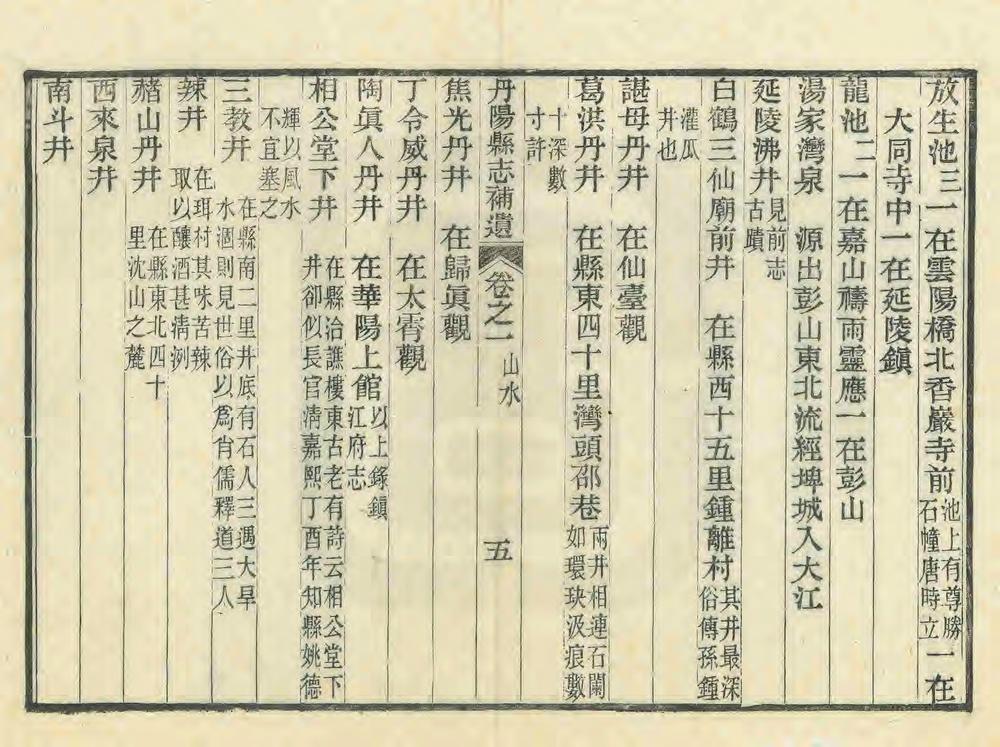 放生池三一在雲陽橋北香巖寺前池上有尊勝石幢唐時立一在
大同寺中一在延陵鎮
龍池二一在嘉山禱雨靈應一在彭山
湯家灣泉　源出彭山東北流經埤城入大江
延陵沸井見前志古蹟
白鶴三仙廟前井　在縣西十五里鍾離村其井最深俗傳孫鍾
灌瓜井也
諶母丹井　在仙臺觀
葛洪丹井　在縣東四十里灣頭邵巷兩井相連石闌如環玦汲痕數
十深數寸許
丹陽縣志補遺　卷之一　山水　五
焦光丹井　在歸眞觀
丁令威丹井　在太霄觀
陶眞人丹井　在華陽上館以上錄鎮江府志
相公堂下井　在縣治譙樓東古老有詩云相公堂下井卻似長官清嘉熙丁酉年知縣姚德
輝以風水不宜塞之
三教井　在縣南二里井底有石人三遇大旱水涸則見世俗以爲肖儒釋道三人
辣井　在珥村其味苦辣取以釀酒甚清洌
赭山丹井　在縣東北四十里沈山之麓
西來泉井
南斗井